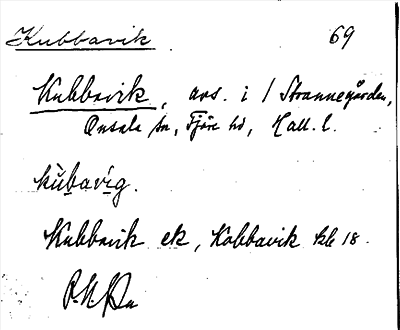 Kubbavik 69
Kubbavik, avs. i 1 Strannegården,
Onsala sn, Fjäre hd, Hall. l.
kùbavig.
Kubbavik ek, Kobbavik kb 18.